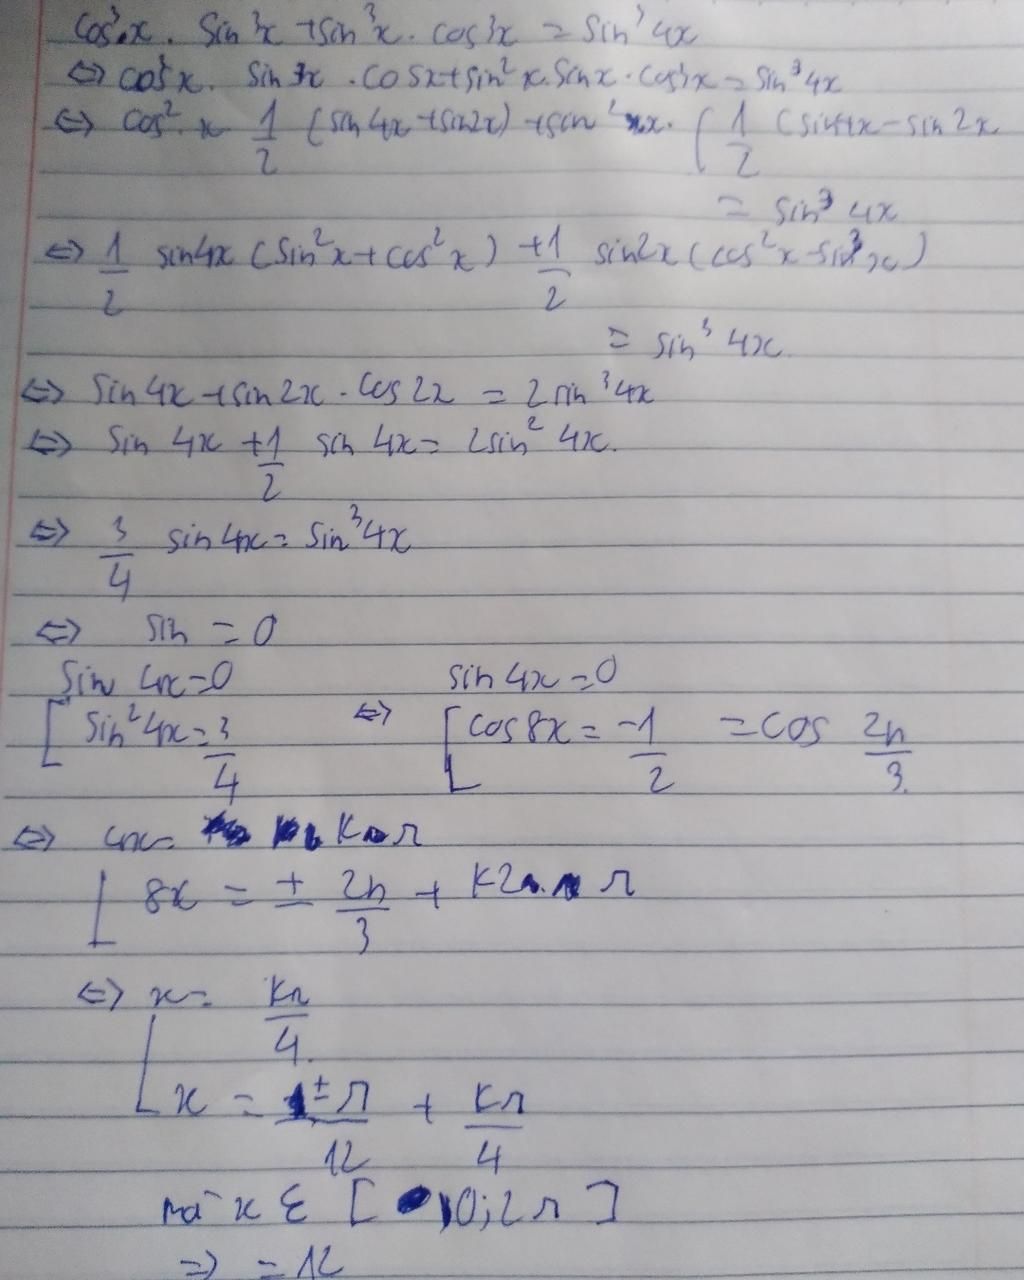 cos³x . sin3x + sin³x . cos3x = sin³4x
⇔ cos²x . sin3x . cosx + sin²x . sinx . cos3x = sin³4x
⇔ cos² x 1/2 (sin4x + sin2x) + sin² x . ( 1/2 (sin4x - sin2x
= sin³ 4x
⇔ 1/2 sin4x (sin²x + cos²x) + 1/2 sin2x (cos²x - sin²x)
= sin³ 4x
⇔ sin4x + sin2x . cos2x = 2sin³4x
⇔ sin 4x + 1/2 sin 4x = 2sin² 4x.
⇔ 3/4 sin4x = sin³4x
⇔ sin = 0
sin 4x = 0 sin4x = 0
[ sin²4x = 3/4 ⇔ [ cos8x = -1/2 = cos 2π/3.
⇔ 4x = kπ
[ 8x = ± 2π/3 + k2π
⇔ x = kπ/4.
[ x = ±π/12 + kπ/4
mà x ∈ [ 0;2π ]
=> = 12